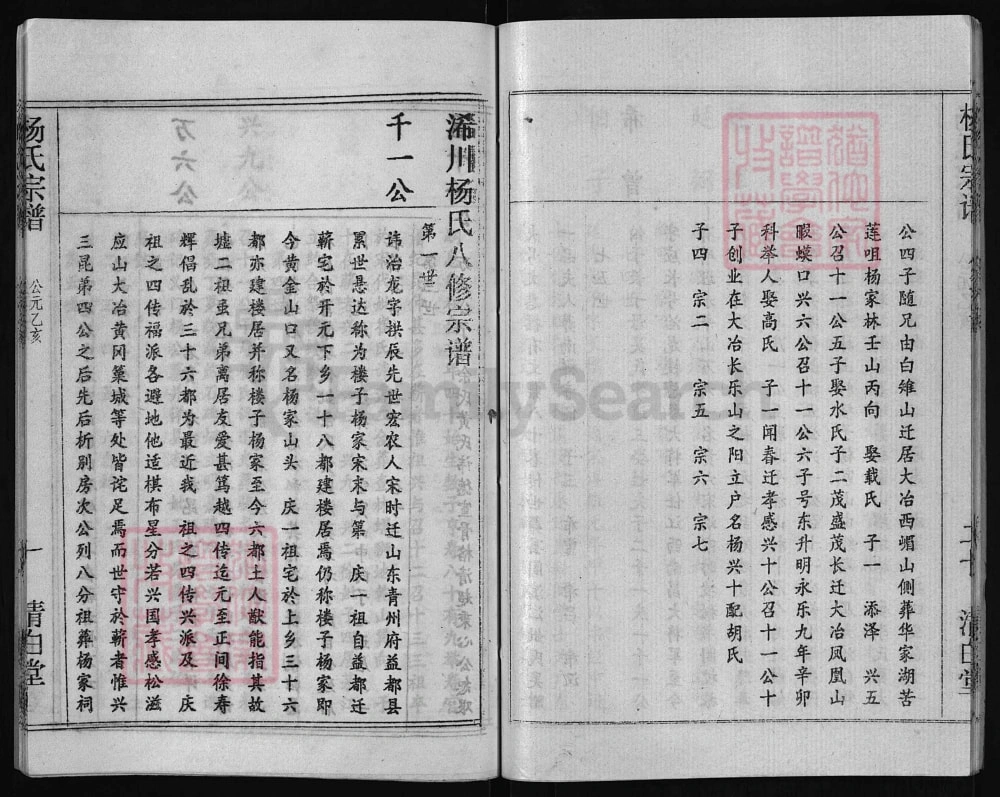 杨氏宗谱
公四子随兄由白雉山迁居大冶西嵋山侧葬华家湖苦
莲咀杨家林壬山丙向 娶载氏 子一 添泽 兴五
公召十一公五子娶水氏子二茂盛茂长迁大冶凤凰山
暇蟆口兴六公召十一公六子号东升明永乐九年辛卯
科举人娶高氏 子一闻春迁孝感兴十公召十一公十
子创业在大冶长乐山之阳立户名杨兴十配胡氏
子四 宗二 宗五 宗六 宗七
清白堂
浠川杨氏八修宗谱
第一世
千一公
讳治龙字拱辰先世宏农人宋时迁山东青州府益都县
累世悬达称为楼子杨家宋末与第 庆一祖自益都迁
蕲宅於开元下乡一十八都建楼居焉仍称楼子杨家即
今黄金山口又名杨家山头 庆一祖宅於上乡三十六
都亦建楼居并称楼子杨家至今六都土人猷能指其故
墟二祖虽兄弟离居友爱甚笃越四传迄元至正间徐寿
辉倡乱於三十六都为最近我 祖之四传兴派及 庆
祖之四传福派各避地他适棋布星分若兴国孝感松滋
应山大冶黄冈箓城等处皆诧足焉而世守於蕲者惟兴
三昆弟四公之后先后析别房次公列八分祖葬杨家祠
杨氏宗谱
公元乙亥
一
清白堂
FamilySearch